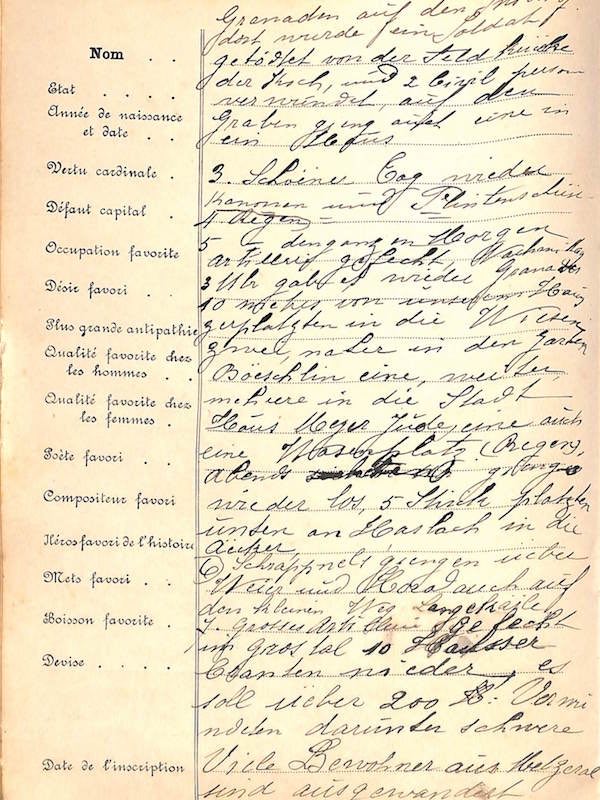 Granaden auf den
dort wurde ein Soldat
getödtet von der Feld küche
der Koch, und 2 Civil person
verwundet, auf den
Graben gieng auch eine in
ein Haus
3. Schöner Tag wieder
Kanonen und Flintenschüs-
4 Regen =
5 - den ganzen Morgen
Artillerie gefecht, Nachmittag
3 Uhr gab es wieder Granaden
10 meter von unserem Haus
zerplatzten in die Wiesen
zwei, näher in den Garten
Böeschlin eine, weiter
mehrere in die Stadt
Haus Meyer Jude, eine auch
eine Wasenplatz (Regen),
Abends gieng es
wieder los, 5 Stück platzten
unten an Haslach in die
Äcker,
6) Schrappnels giengen über
Weier und Horod auch auf
den kleinen Weg Langehäile
7. Grosses Artillerie Gefecht
im Grostal 10 Häusser
brannten nieder, es
soll über 200 Verwun
deten darunter schwere
Viele Bewohner aus Metzeral
sind ausgewandert
Nom . .
Etat . . . .
Année de naissance
et date . .
Vertu cardinale .
Défaut capital .
Occupation favorite
Désir favori . .
Plus grande antipathie
Qualité favorite chez
les hommes . .
Qualité favorite chez
les femmes . .
Poète favori . .
Compositeur favori
Héros favori de l'histoire
Mets favori . .
Boisson favorite .
Devise . . . .
Date de l'inscription